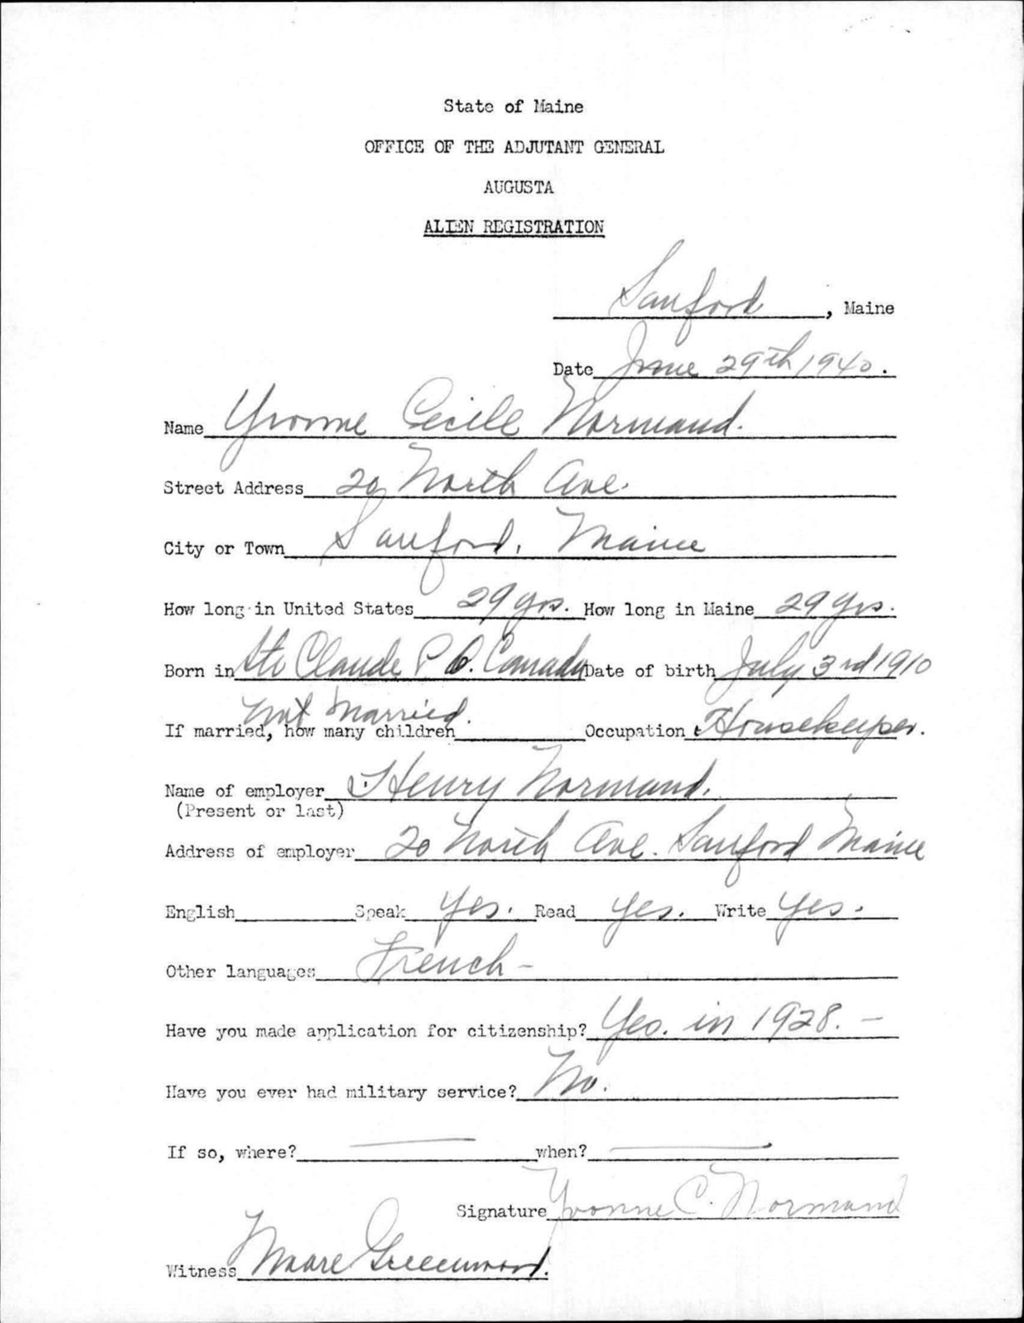 State of Maine
OFFICE OF THE ADJUTANT GENERAL
AUGUSTA
ALIEN REGISTRATION
Sanford, Maine
Date June 29th 1940.
Name Yvonne Cecile Normand.
Street Address 20 North Ave.
City or Town Sanford, Maine
How long in United States 29 yrs. How long in Maine 29 yrs.
Born in Ste Claude P.Q. Canada Date of birth July 3rd 1910
Not Married.
If married, how many children Occupation Housekeeper.
Name of employer Henry Normand.
(Present or last)
Address of employer 20 North Ave. Sanford Maine
English Speak Yes. Read yes. Write Yes.
Other languages French -
Have you made application for citizenship? Yes. in 1928. -
Have you ever had military service? No.
If so, where? when?
Signature Yvonne C. Normand
Witness Moare Greenwood.